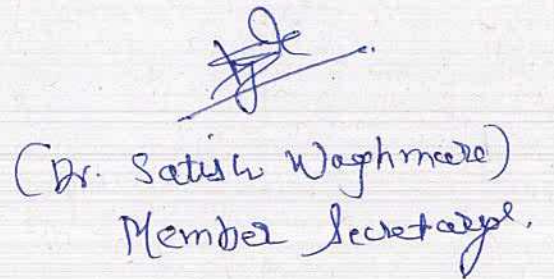 (Dr. Satish Waghmare)
Member Secretary.